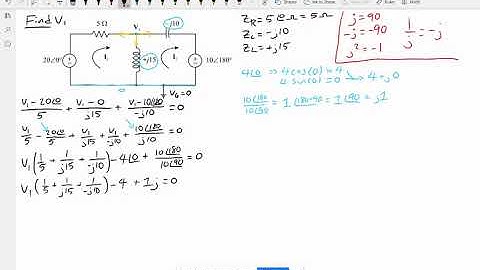 Find V₁
5 Ω
-j10
V₁
20∠0° 
+j15
10∠180°
I₁
I₂
V₀=0
Z_R = 5∠0 Ω = 5 Ω
Z_C = -j10
Z_L = +j15
j=90
-j=-90
j²=-1
1/j = -j
4∠0 ⇒ 4cos(0)=4
4 sin(0)=0 → 4+j0
10∠180/10∠90 = 1∠180-90 = 1∠90 = j1
V₁-20∠0/5 + V₁-0/j15 + V₁-10∠180/-j10 = 0
V₁/5 - 20∠0/5 + V₁/j15 + V₁/-j10 + 10∠180/10∠90 = 0
V₁(1/5 + 1/j15 + 1/-j10) - 4∠0 + 10∠180/10∠90 = 0
V₁(1/5 + 1/j15 + 1/-j10) - 4 + 1j = 0